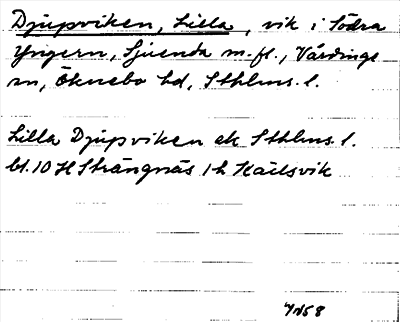 Djupviken, Lilla, vik i Södra
Yngern, Sjuenda m.fl., Vårdinge
sn, Öknebo hd, Sthlms. l.
Lilla Djupviken ek Sthlms. l.
bl. 10 H Strängnäs 1 h Kailsvik